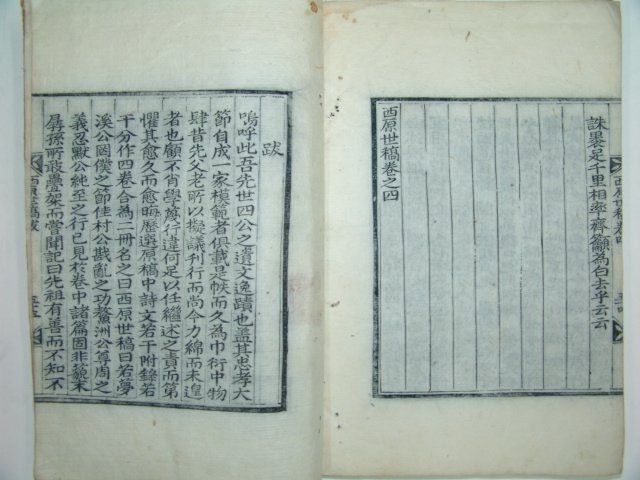 誅畏足千里相率齊籲為白去乎云云
西原世稿卷之四
跋
嗚呼此吾先世四公之遺文逸蹟也蓋其忠孝大
節自成一家模範者俱載是帙而久為巾衍中物
肆昔先父老所以擬議刊行而尚今力綿而未遑
者也顧不肖學蔑行違何足以任繼述之責而第
懼其愈久而愈晦歷選原稿中詩文若干附錄若
干分作四卷合為二冊名之曰西原世稿曰若夢
溪公罔僕之節佳村公戡亂之功鰲洲公尊周之
義忍默公純至之行已見於卷中諸篇固非藐末
孱孫所敢疊架而嘗聞記曰先祖有善而不知不
西原世稿跋
五十五